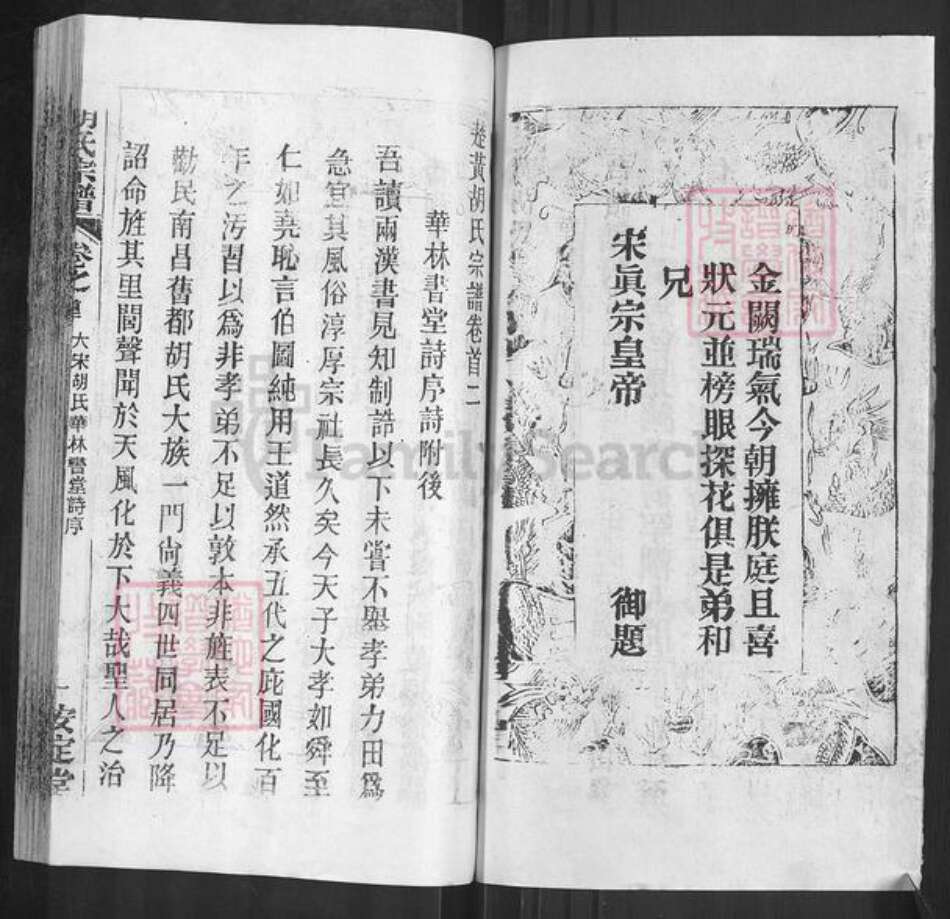 金闕瑞氣今朝擁朕庭且喜
狀元並榜眼探花俱是弟和
兄
宋眞宗皇帝 御題
黃胡氏宗譜卷首二
華林書堂詩序詩附後
吾讀兩漢書見知制誥以下未嘗不舉孝弟力田爲
急宜其風俗淳厚宗社長久矣今天子大孝如舜至
仁如堯恥言伯圖純用王道然承五代之庇國化百
年之汚習以爲非孝弟不足以敦本非旌表不足以
勸民南昌舊都胡氏大族一門尙義四世同居乃降
詔命旌其里閭聲聞於天風化於下大哉聖人之治
胡氏宗譜 卷之 大宋胡氏華林書堂詩序 一 安定堂
FamilySearch